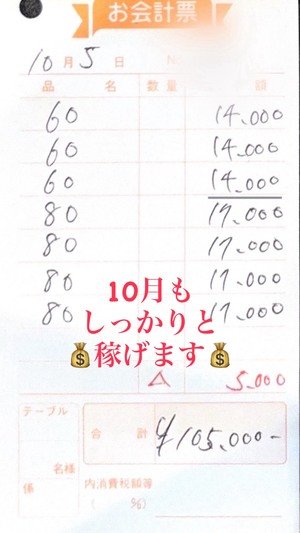 お会計票
10月5日
品 名 数量 額
60 14.000
60 14.000
60 14.000
80 17.000
80 17.000
80 17.000
80 17.000
10月も
しっかりと
💰稼げます💰
△ 5.000
テーブル
合 計 ¥105.000-
名様
係
内消費税額等
( %)